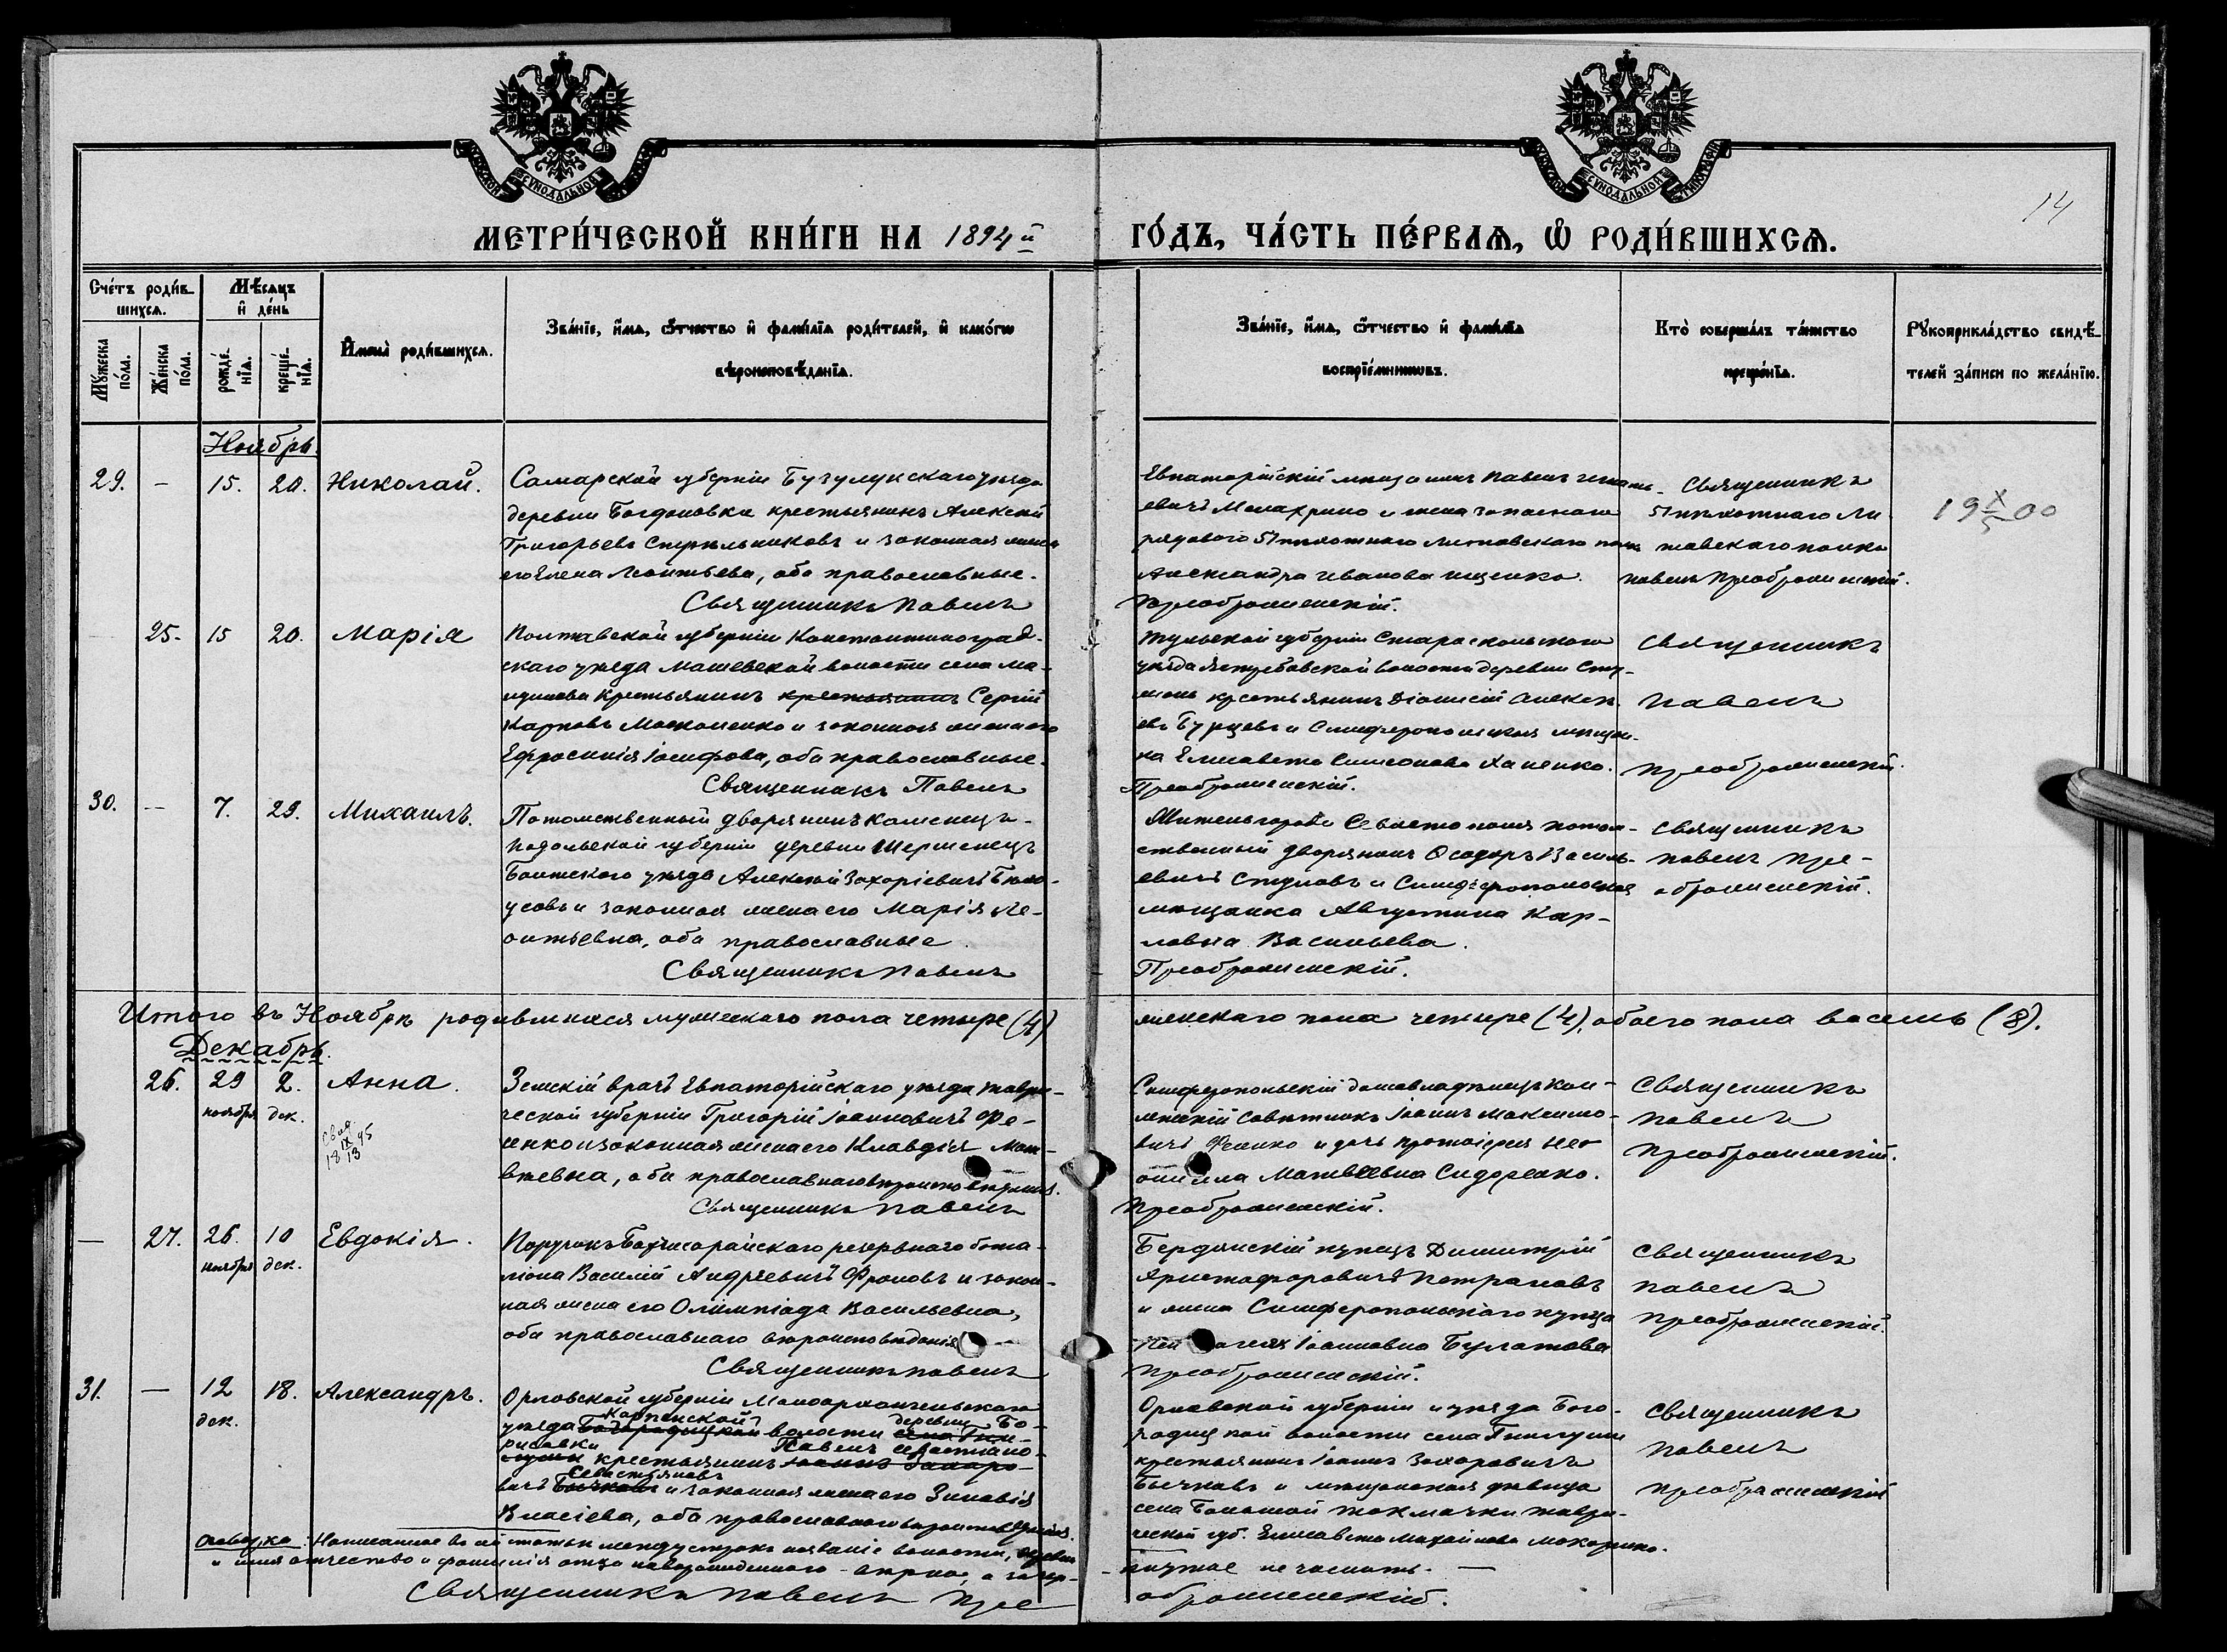 МЕТРИ́ЧЕСКОЙ КНИ́ГИ НА 1894й ГО́ДЪ, ЧА́СТЬ ПЕ́РВАЯ, Ѡ РОДИ́ВШИХСЯ.
14
Сче́тъ роди́в-
шихся.
Мѣ́сяцъ
и де́нь
Му́жеска
по́ла.
Же́нска
по́ла.
рожде́-
нїя.
креще́-
нїя.
Имена̀ роди́вшихся.
Зва́нїе, и́мя, ѻ́тчество и фами́лїа роди́телей, и како́гѡ
вѣроисповѣ́данїа.
Зва́нїе, и́мя, ѻ́тчество и фами́лїа
воспрїе́мниковъ.
Кто̀ соверша́лъ та́инство
креще́нїа.
Рꙋкоприкла́дство свидѣ́-
телей за́писи по жела́нїю.
Ноябрь
29. - 15. 20. Николай.
Самарской губерніи Бузулукскаго уѣзда
деревни Богдановки крестьянинъ Алексѣй
Григорьевъ и законная жена
его Елена Леонтьева, оба православные.
Священникъ Павелъ
Евпаторійскій мѣщанинъ Павелъ
евичъ и жена запаснаго
рядового 51 пѣхотнаго Литовскаго полка
Александра Иванова Ищенко.
Преображенскій.
Священникъ
51 пѣхотнаго Ли-
товскаго полка
Павелъ Преображенскій.
19 X/5 00
25. 15 20. Марія
Полтавской губерніи Константиноград-
скаго уѣзда Машевской волости села Ма-
крестьянинъ крестьянинъ Сергій
Карповъ и законная жена его
Ефросинія Іосифова, оба православные.
Священникъ Павелъ
Тульской губерніи
уѣзда Ястребовской волости деревни
крестьянинъ Діонисій Алексѣ-
евъ Бурцевъ и Симферопольская мѣщан-
ка Елисавета Симеонова Ханенко.
Преображенскій.
Священникъ
Павелъ
Преображенскій.
30. - 7. 29. Михаилъ.
Потомственный дворянинъ Каменецъ-
Подольской губерніи деревни
Балтскаго уѣзда Алексѣй Захаріевичъ
и законная жена его Марія Ле-
онтьевна, оба православные.
Священникъ Павелъ
Житель города Севастополя потом-
ственный дворянинъ Ѳеодоръ Василь-
евичъ и Симферопольская
мѣщанка Августина Кар-
ловна Васильева.
Преображенскій.
Священникъ
Павелъ Пре-
ображенскій.
Итого въ Ноябрѣ родившихся мужескаго пола четыре (4) женскаго пола четыре (4), обоего пола восемь (8).
Декабрь.
26. 29 2. Анна.
ноября дек.
Свид.
18 IX/13 95
Земскій врачъ Евпаторійскаго уѣзда Таври-
ческой губерніи Григорій Іоанновичъ Фе-
сенко и законная жена его Клавдія Мат-
вѣевна, оба православнаго вѣроисповѣданія.
Священникъ Павелъ
Симферопольскій домовладѣлецъ кол-
лежскій совѣтникъ Іоаннъ Максимо-
вичъ Фесенко и дочь протоіерея Нео-
нила Матвѣевна Сидоренко.
Преображенскій.
Священникъ
Павелъ
Преображенскій.
— 27. 26. 10 Евдокія.
ноября дек.
Поручикъ Бахчисарайскаго резервнаго бата-
ліона Василій Андреевичъ Фроловъ и закон-
ная жена его Олимпіада Васильевна,
оба православнаго вѣроисповѣданія
Священникъ Павелъ
Бердянскій купецъ Димитрій
Аристофоровичъ Петрановъ
и жена Симферопольскаго купца
Іоанновна Булатова
Преображенскій.
Священникъ
Павелъ
Преображенскій.
31. — 12 18. Александръ.
дек.
Орловской губерніи Малоархангельскаго
Карпенской деревни Бо-
уѣзда Богородицкой волости села Гни-
рисовки Павелъ Севастіано-
лушки крестьянинъ Іоаннъ Захаро-
Севастьяновъ
вичъ Бычковъ и законная жена его Зиновія
Власіева, оба православнаго вѣроисповѣданія.
Орловской губерніи и уѣзда Бого-
родицкой волости села Гнилуши
крестьянинъ Іоаннъ Захаровичъ
Бычковъ и мѣщанская дѣвица
села Большой Токмачки Таври-
ческой губ. Елисавета Михайлова
Священникъ
Павелъ
Преображенскій
Оговорка: Написанное въ сей статьи между строкъ названіе волости, деревни
и имя отчество и фамилія отца новорожденнаго - вѣрно, а зачер-
кнутое не читать. —
Священникъ Павелъ Пре
ображенскій.